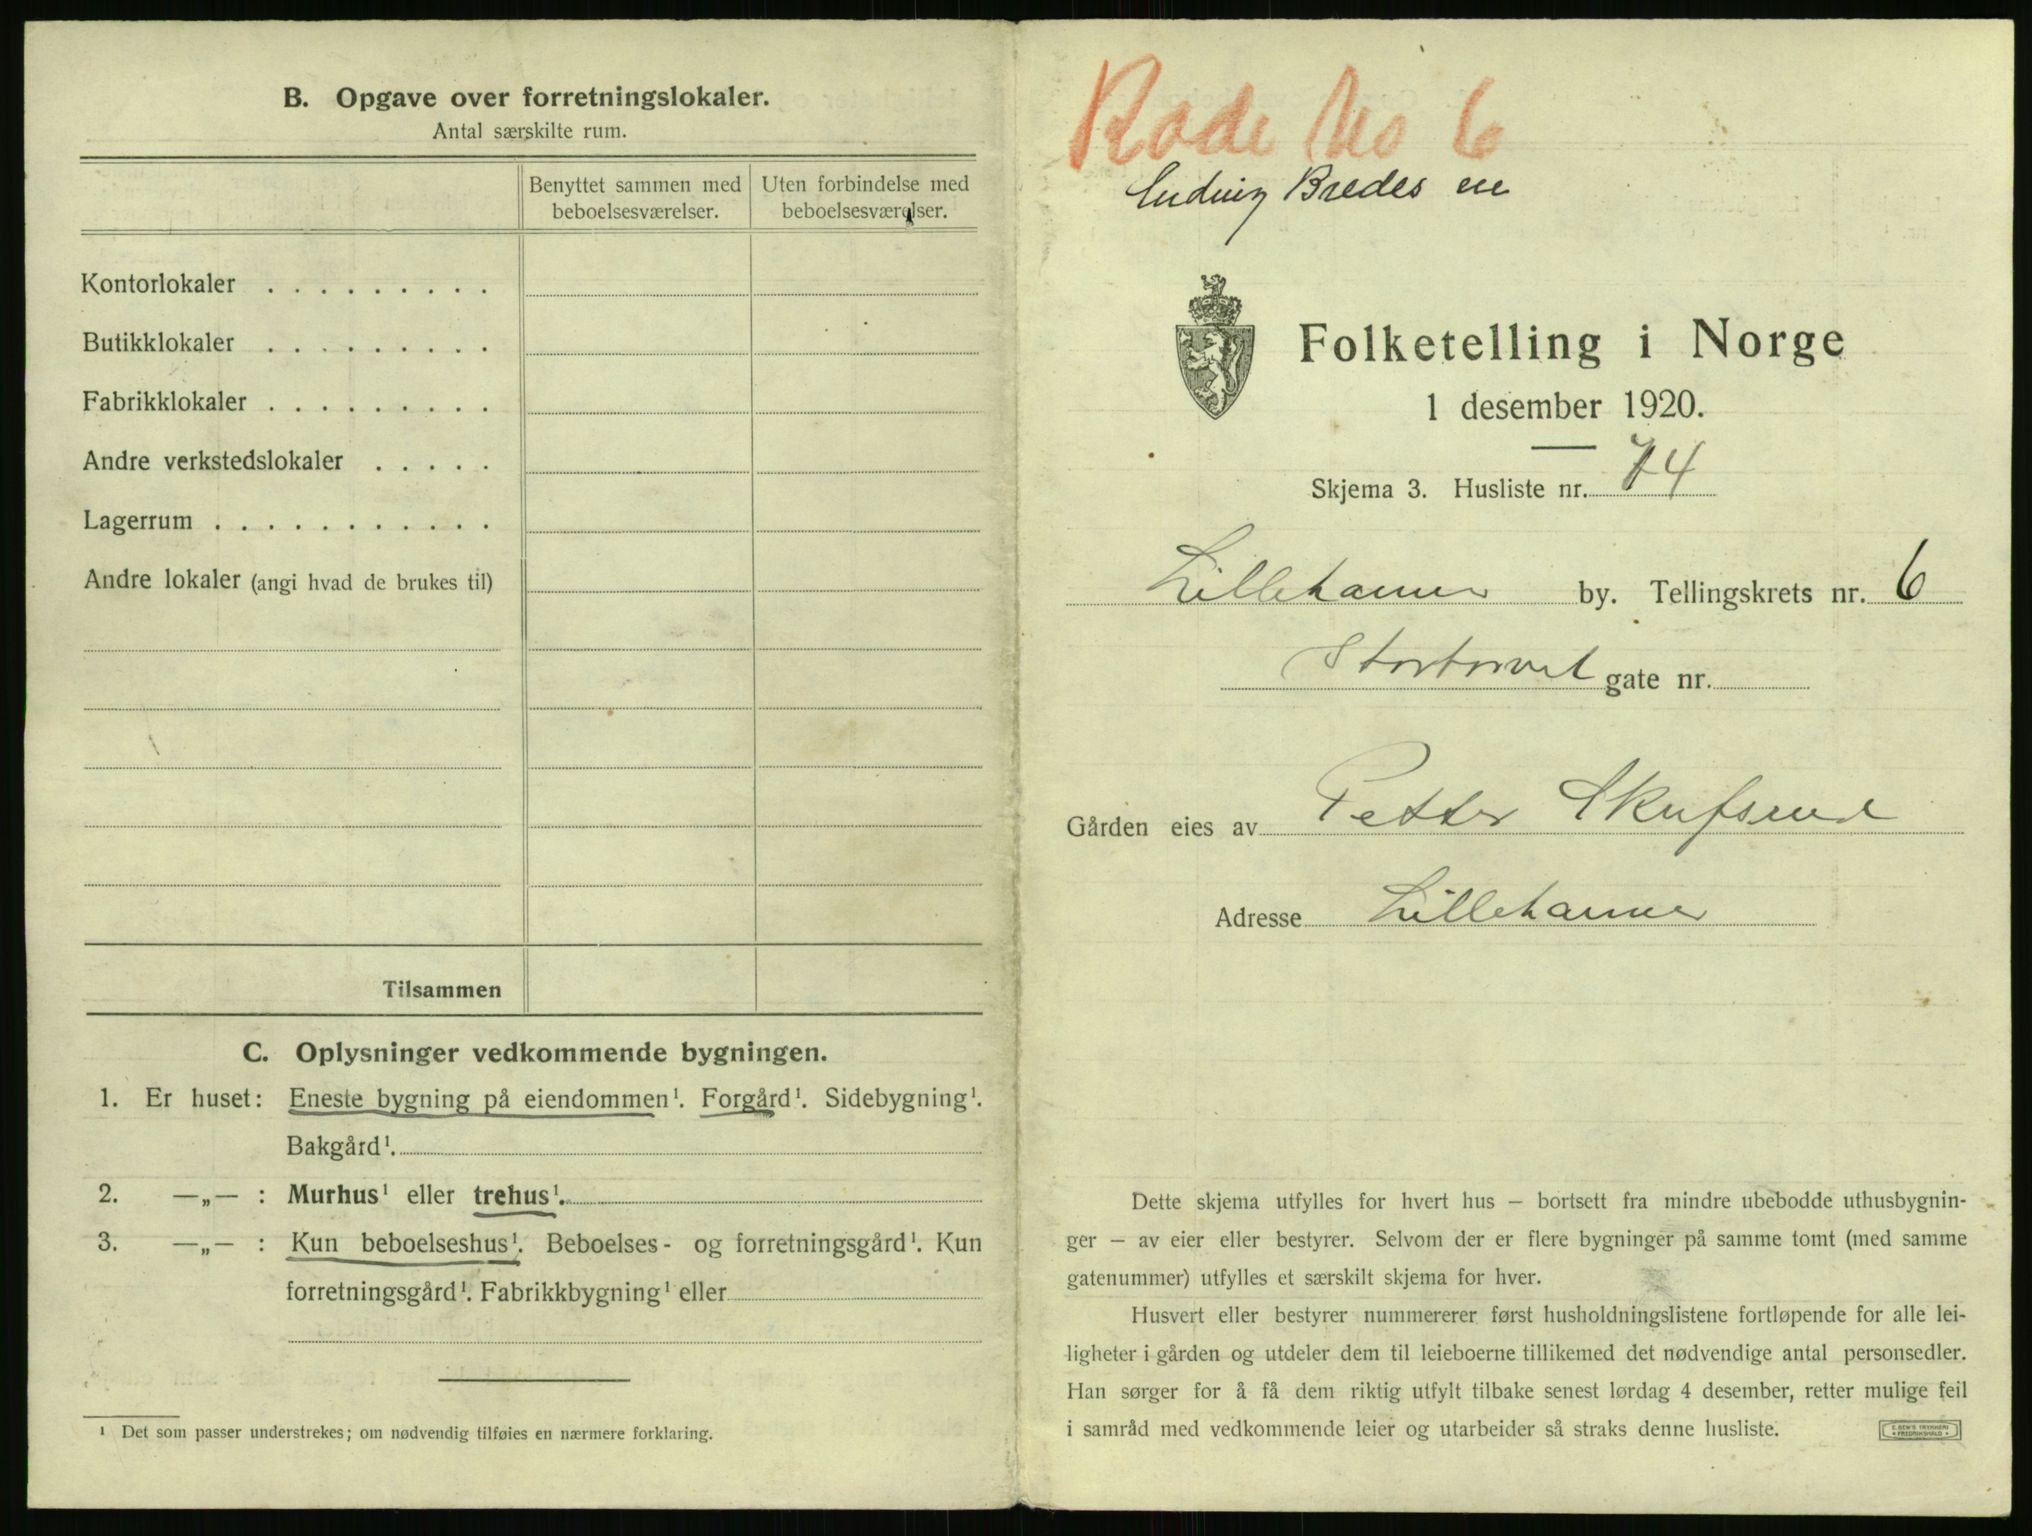 B. Opgave over forretningslokaler.
Antal særskilte rum.
Benyttet sammen med beboelsesværelser.
Uten forbindelse med beboelsesværelser.
Kontorlokaler . . . . . . . . .
Butikklokaler . . . . . . . . .
Fabrikklokaler . . . . . . . . .
Andre verkstedslokaler . . . . .
Lagerrum . . . . . . . . . . .
Andre lokaler (angi hvad de brukes til)
Tilsammen
C. Oplysninger vedkommende bygningen.
1. Er huset: Eneste bygning på eiendommen¹. Forgård¹. Sidebygning¹.
Bakgård¹.
2. —„— : Murhus¹ eller trehus¹.
3. —„— : Kun beboelseshus¹. Beboelses- og forretningsgård¹. Kun
forretningsgård¹. Fabrikkbygning¹ eller
¹ Det som passer understrekes; om nødvendig tilføies en nærmere forklaring.
Rode No 6
Ludvig Bredesen
Folketelling i Norge
1 desember 1920.
Skjema 3. Husliste nr. 74
Lillehammer by. Tellingskrets nr. 6
Stortorvet gate nr.
Gården eies av Petter Skufsrud
Adresse Lillehammer
Dette skjema utfylles for hvert hus – bortsett fra mindre ubebodde uthusbygnin-
ger – av eier eller bestyrer. Selvom der er flere bygninger på samme tomt (med samme
gatenummer) utfylles et særskilt skjema for hver.
Husvert eller bestyrer nummererer først husholdningslistene fortløpende for alle lei-
ligheter i gården og utdeler dem til leieboerne tillikemed det nødvendige antal personsedler.
Han sørger for å få dem riktig utfylt tilbake senest lørdag 4 desember, retter mulige feil
i samråd med vedkommende leier og utarbeider så straks denne husliste.